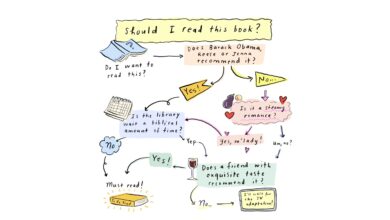 Should I read this book?
Do I want to
read this?
Does Barack Obama,
Reese or Jenna
recommend it?
Yes!
No...
Is it a steamy
romance?
Is the library
wait a biblical
amount of time?
No
Yep
Yes, m'lady!
Um, no?
Yes!
Does a friend with
exquisite taste
recommend it?
Must read!
No...
I'll wait for
the TV
adaptation!